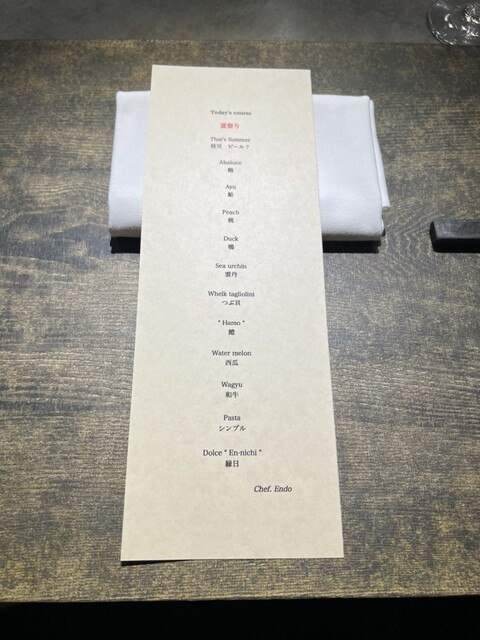 Today's course
夏祭り
That's Summer
枝豆　ビール？
Abalone
鮑
Ayu
鮎
Peach
桃
Duck
鴨
Sea urchin
雲丹
Whelk tagliolini
つぶ貝
" Hamo "
鱧
Water melon
西瓜
Wagyu
和牛
Pasta
シンプル
Dolce " En-nichi "
縁日
Chef. Endo